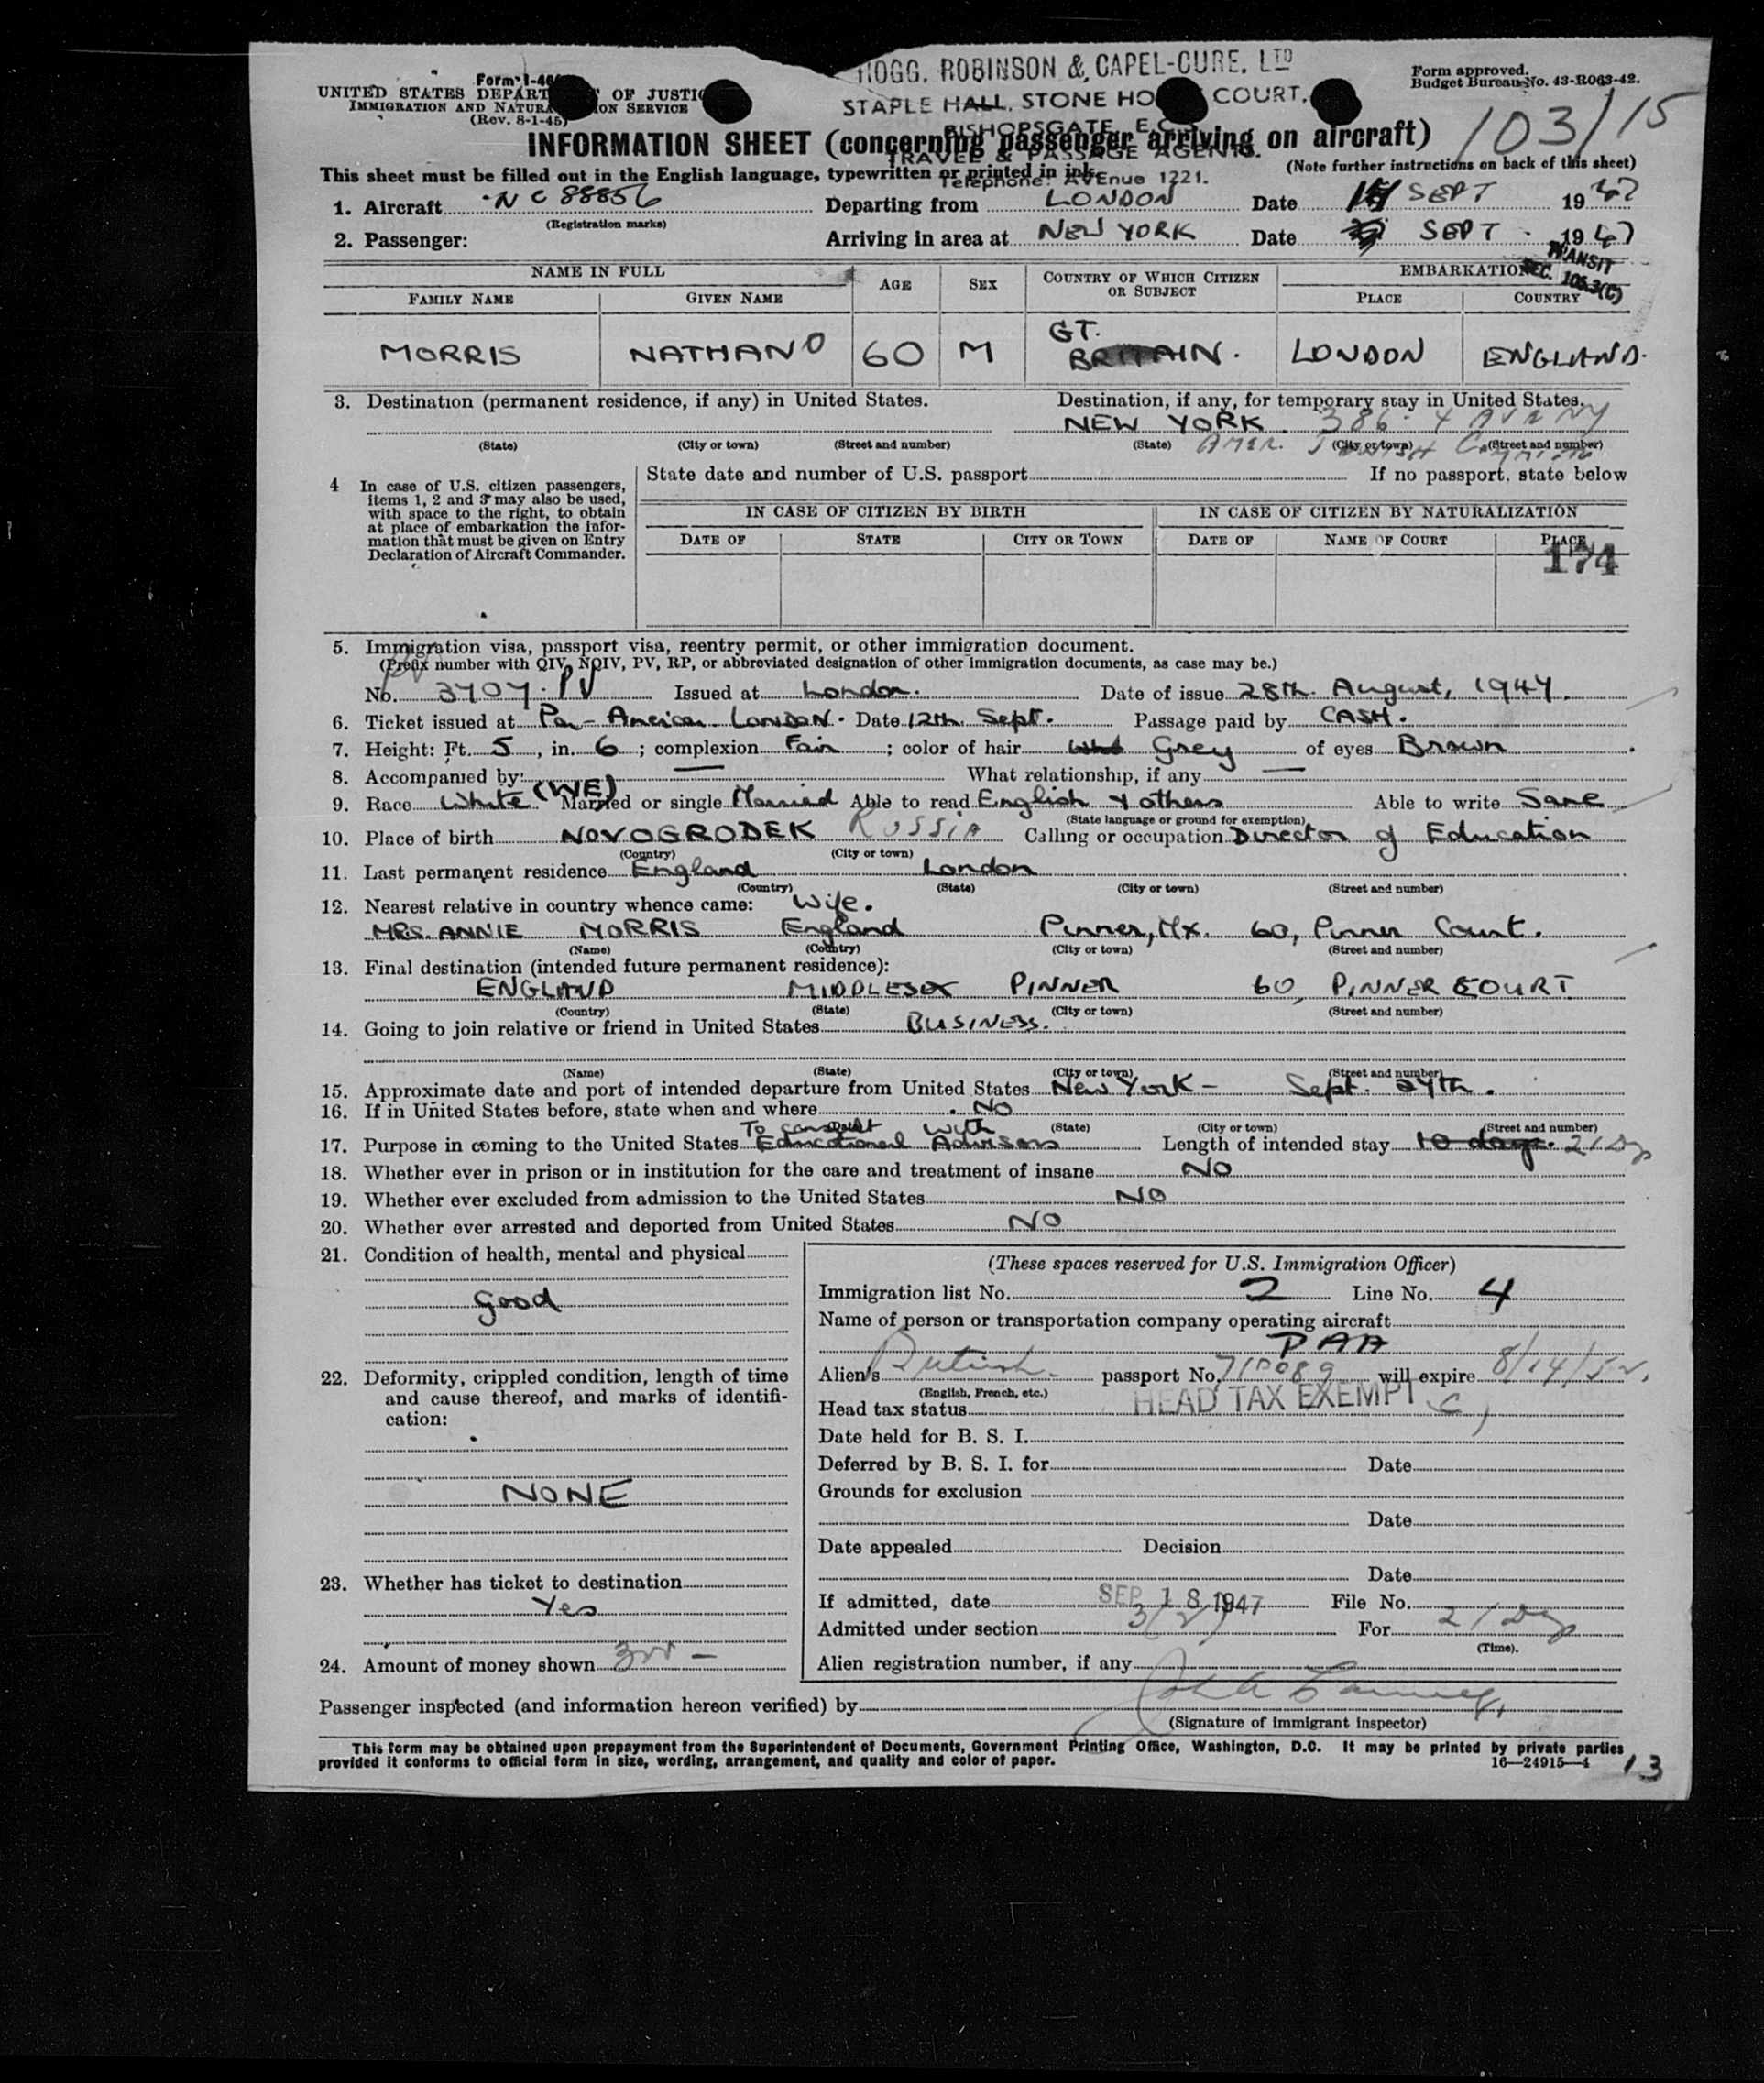 HOGG, ROBINSON & CAPEL-CURE, LTD
STAPLE HALL, STONE COURT,
BISHOPSGATE, E.C.
TRAVEL & PASSAGE AGENTS.
Telephone: AVEnue 1221.
Form
UNITED STATES DEPART OF JUSTIC
IMMIGRATION AND NATURA ION SERVICE
(Rev. 8-1-45)
Form approved.
Budget Bureau No. 43-R063-42.
103/15
INFORMATION SHEET (concerning passenger arriving on aircraft)
(Note further instructions on back of this sheet)
This sheet must be filled out in the English language, typewritten or printed in ink.
1. Aircraft NC 88856 Departing from LONDON Date SEPT 1947
(Registration marks)
2. Passenger: Arriving in area at NEW YORK Date SEPT. 1947
TRANSIT
SEC. 105.3(C)
NAME IN FULL AGE SEX COUNTRY OF WHICH CITIZEN OR SUBJECT EMBARKATION
FAMILY NAME GIVEN NAME PLACE COUNTRY
MORRIS NATHAN 60 M GT. BRITAIN. LONDON ENGLAND.
3. Destination (permanent residence, if any) in United States. Destination, if any, for temporary stay in United States.
NEW YORK. 386. 4 AVE NY
(State) (City or town) (Street and number) (State) (City or town) (Street and number)
4 In case of U.S. citizen passengers, items 1, 2 and 3 may also be used, with space to the right, to obtain at place of embarkation the information that must be given on Entry Declaration of Aircraft Commander.
State date and number of U.S. passport If no passport, state below
IN CASE OF CITIZEN BY BIRTH IN CASE OF CITIZEN BY NATURALIZATION
DATE OF STATE CITY OR TOWN DATE OF NAME OF COURT PLACE
174
5. Immigration visa, passport visa, reentry permit, or other immigration document.
(Prefix number with QIV, NQIV, PV, RP, or abbreviated designation of other immigration documents, as case may be.)
No. 3707. PV Issued at London. Date of issue 28th. August, 1947.
6. Ticket issued at Pan-American London. Date 12th Sept. Passage paid by CASH.
7. Height: Ft. 5, in. 6; complexion Fair; color of hair Grey of eyes Brown
8. Accompanied by: — What relationship, if any —
9. Race White (WE) Married or single Married Able to read English & others Able to write Same
(State language or ground for exemption)
10. Place of birth NOVOGRODEK RUSSIA Calling or occupation Director of Education
(Country) (City or town)
11. Last permanent residence England London
(Country) (State) (City or town) (Street and number)
12. Nearest relative in country whence came: Wife.
MRS. ANNIE MORRIS England Pinner, Mx. 60, Pinner Court.
(Name) (Country) (City or town) (Street and number)
13. Final destination (intended future permanent residence):
ENGLAND MIDDLESEX PINNER 60, PINNER COURT
(Country) (State) (City or town) (Street and number)
14. Going to join relative or friend in United States BUSINESS.
(Name) (State) (City or town) (Street and number)
15. Approximate date and port of intended departure from United States New York - Sept. 27th.
16. If in United States before, state when and where NO
(State) (City or town) (Street and number)
17. Purpose in coming to the United States To consult with Educational Advisers Length of intended stay 10 days. 21 Dy
18. Whether ever in prison or in institution for the care and treatment of insane NO
19. Whether ever excluded from admission to the United States NO
20. Whether ever arrested and deported from United States NO
21. Condition of health, mental and physical
Good
22. Deformity, crippled condition, length of time and cause thereof, and marks of identification:
NONE
23. Whether has ticket to destination
Yes
24. Amount of money shown
(These spaces reserved for U.S. Immigration Officer)
Immigration list No. 2 Line No. 4
Name of person or transportation company operating aircraft
PAA
Alien's British passport No. will expire 8/14/52.
(English, French, etc.)
Head tax status HEAD TAX EXEMPT
Date held for B. S. I.
Deferred by B. S. I. for Date
Grounds for exclusion
Date
Date appealed Decision
Date
If admitted, date SEP 18 1947 File No.
Admitted under section 3(2) For 21 Dy
(Time).
Alien registration number, if any
Passenger inspected (and information hereon verified) by
(Signature of Immigrant Inspector)
This form may be obtained upon prepayment from the Superintendent of Documents, Government Printing Office, Washington, D.C. It may be printed by private parties
provided it conforms to official form in size, wording, arrangement, and quality and color of paper.
16—24915—4
13